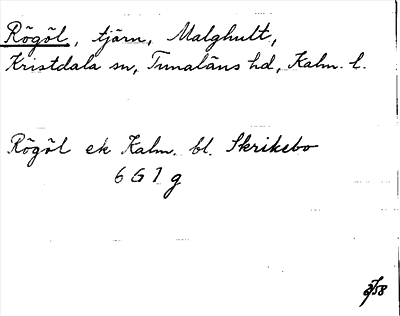 Rögöl, tjärn, Malghult,
Kristdala sn, Tunaläns hd, Kalm. l.
Rögöl ek Kalm. bl. Skrikebo
6 G 1 g